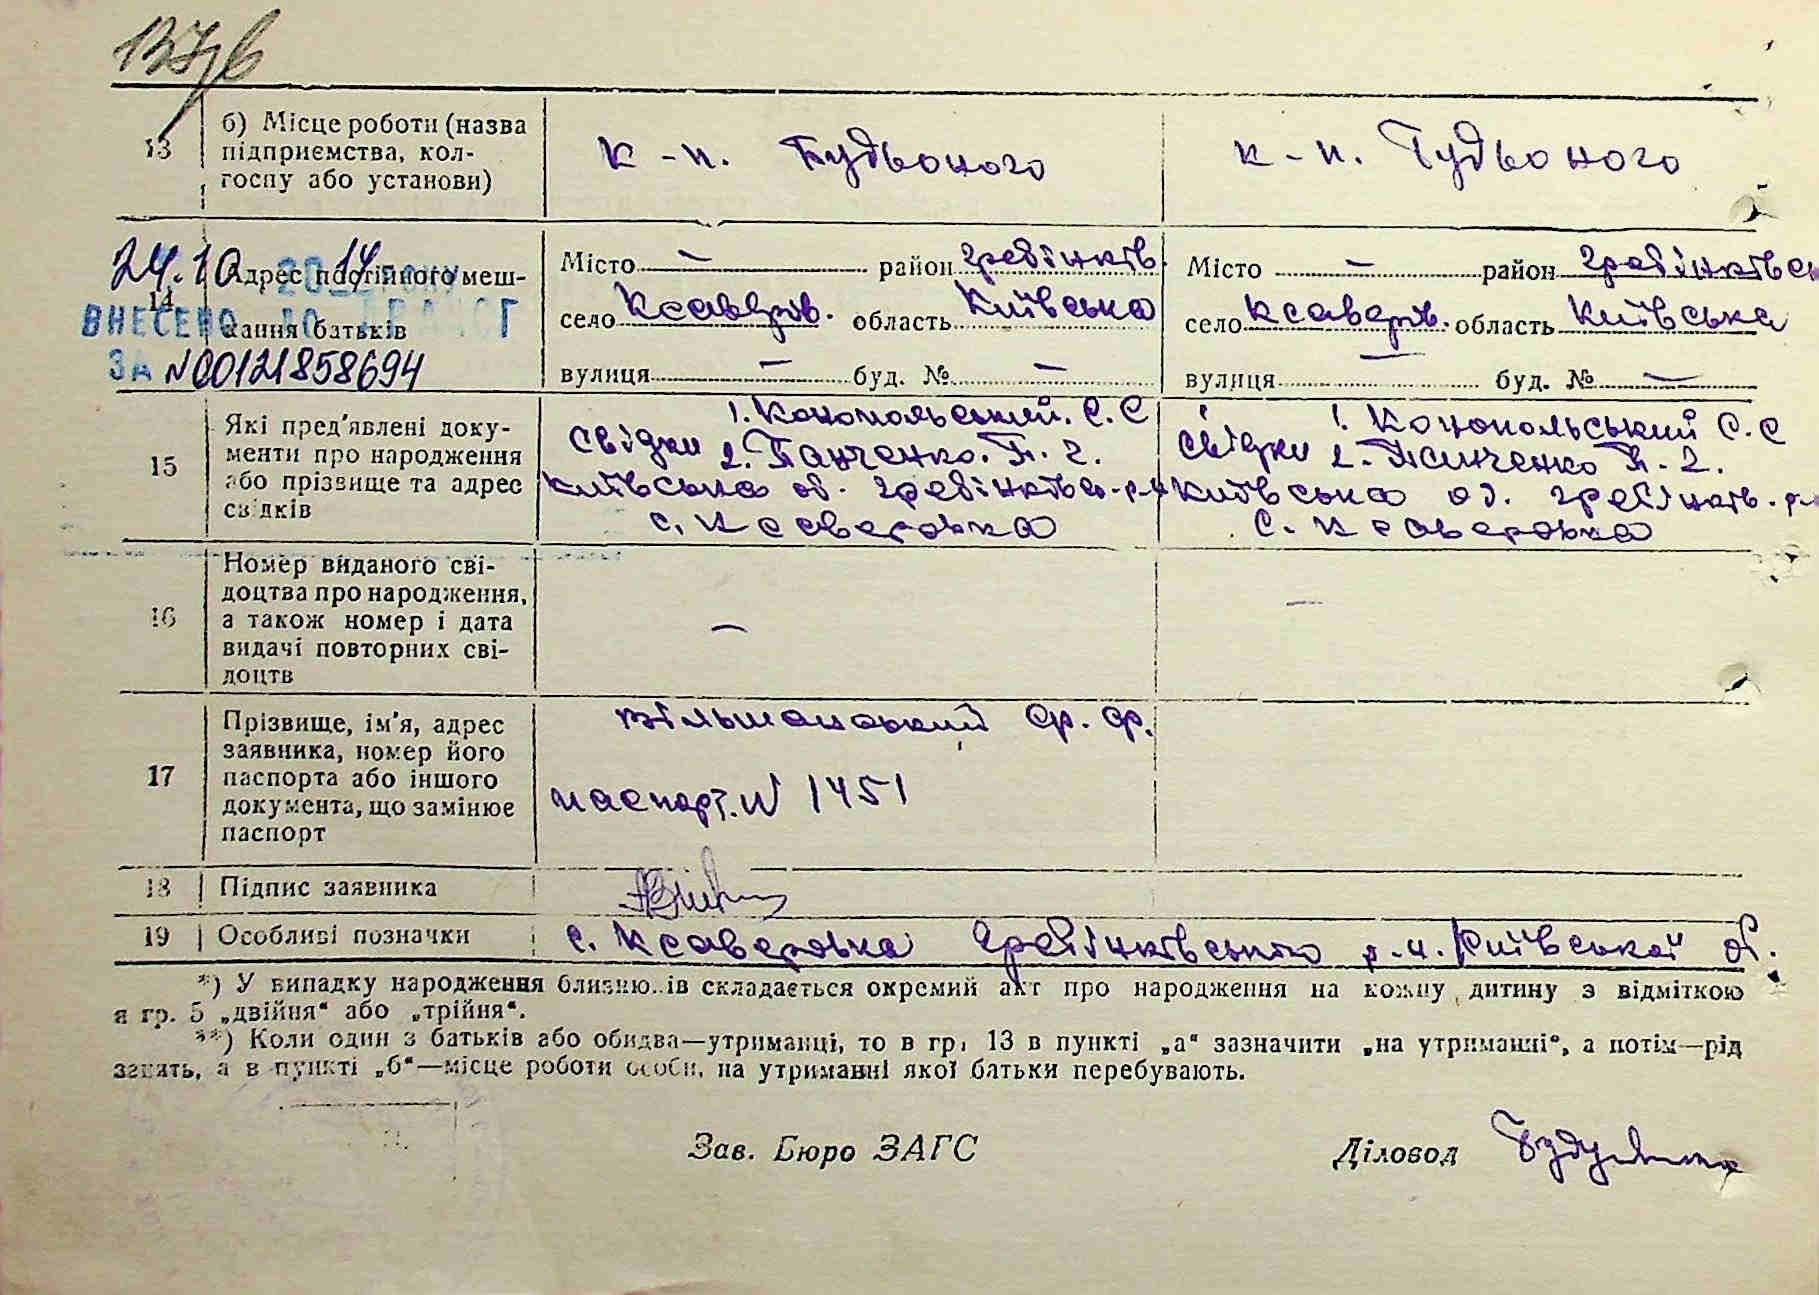 137в
13 б) Місце роботи (назва підприємства, колгоспу або установи) к-п. Будьоного к-п. Будьоного
24.10 2014
ВНЕСЕНО ДО ДРАЦСГ
ЗА №00121858694
14 Адрес постійного мешкання батьків
Місто — район Гребінків. Місто — район Гребінківсь
село Ксаверів. область Київська село Ксаверів. область Київська
вулиця — буд. № — вулиця — буд. № —
15 Які пред'явлені документи про народження або прізвище та адрес свідків
1. Конопольський. С. С 1. Конопольський С. С
Свідки 2. Панченко. П. Г. Свідки 2. Панченко П. Г.
Київська об. Гребінківсь. р-н Київська об. Гребінків. р-н
с. Ксаверовка с. Ксаверовка
16 Номер виданого свідоцтва про народження, а також номер і дата видачі повторних свідоцтв — —
17 Прізвище, ім'я, адрес заявника, номер його паспорта або іншого документа, що замінює паспорт
Вільшанський Ф. Ф.
паспорт. № 1451
18 Підпис заявника
19 Особливі позначки с. Ксаверовка Гребінківського р-н. Київської об.
*) У випадку народження близнюків складається окремий акт про народження на кожну дитину з відміткою
в гр. 5 „двійня“ або „трійня“.
**) Коли один з батьків або обидва—утриманці, то в гр. 13 в пункті „а“ зазначити „на утриманні“, а потім—рід
занять, а в пункті „б“—місце роботи особи, на утриманні якої батьки перебувають.
Зав. Бюро ЗАГС Діловод